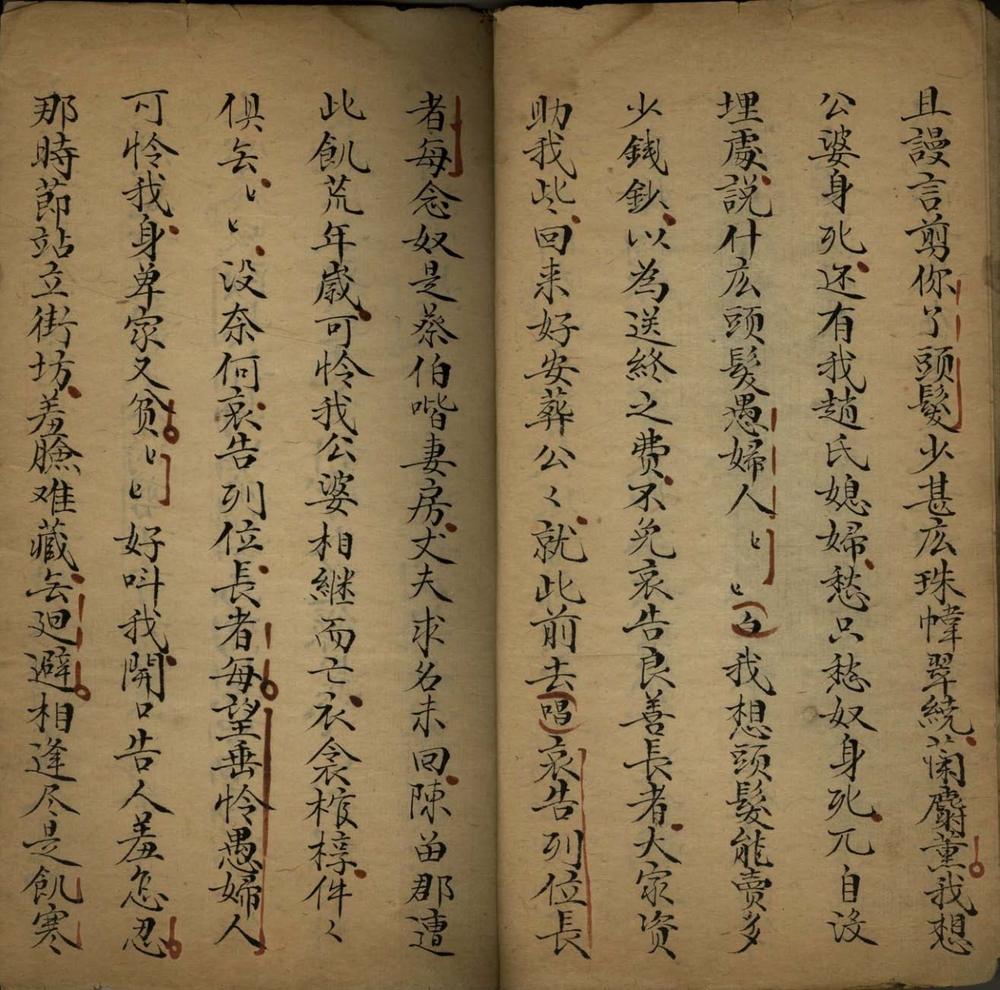 且謾言剪你丫頭髮少甚庅珠幃翠繞蘭麝薰我想
公婆身死还有我趙氏媳婦愁只愁奴身死兀自没
埋處説什庅頭髮愚婦人〻〻白我想頭髮能賣多
少錢鈔以為送終之費不免哀告良善長者大家资
助我些回来好安葬公〻就此前去唱哀告列位長
者每念奴是蔡伯喈妻房丈夫求名未回陳畄郡遭
此飢荒年歲可怜我公婆相継而亡衣衾棺椁件〻
俱无〻〻没奈何哀告列位長者每望垂怜愚婦人
可怜我身单家又貧〻〻好叫我開口告人羞怎忍
那時莭站立街坊羞臉难藏无廻避相逢尽是飢寒